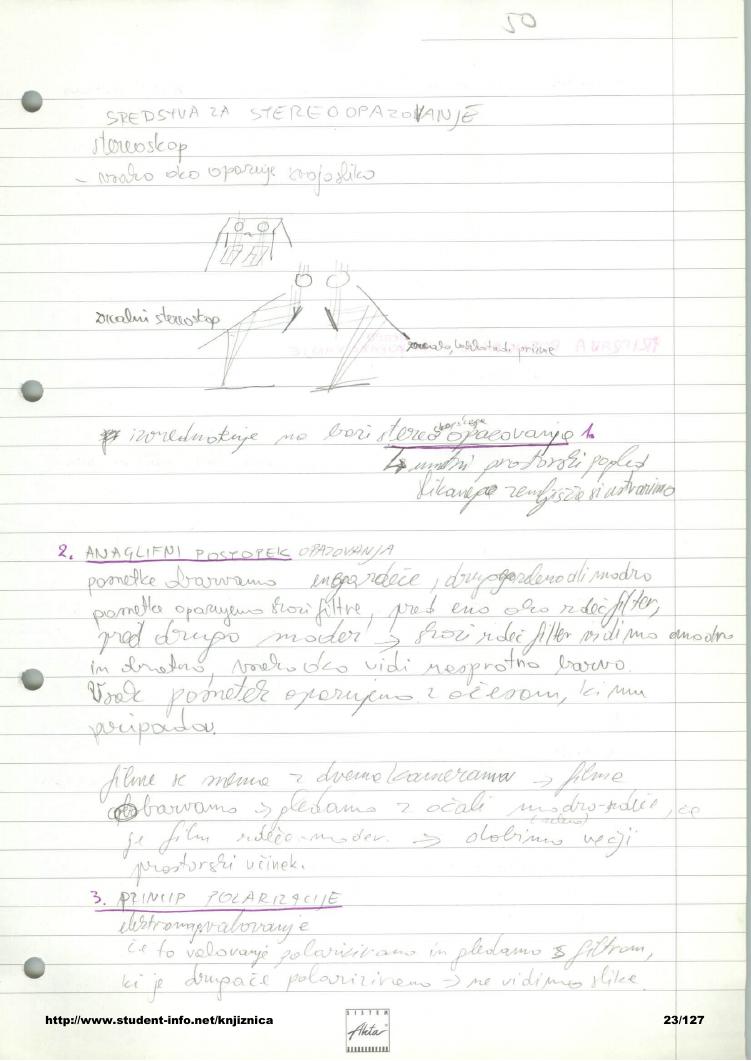 50
SREDSTVA ZA STEREOOPAZOVANJE
stereoskop
- vsako oko opazuje svojo sliko
zrcalni stereoskop
zrcalo, lahko tudi prizme
izvrednotenje na bazi stereo opazovanja 1.
↳ umetni prostorski pogled
slikanega zemljišča si ustvarimo
2. ANAGLIFNI POSTOPEK OPAZOVANJA
posnetke obarvamo enega rdeče, drugega zeleno ali modro
posnetke opazujemo skozi filtre, pred eno oko rdeč filter,
pred drugo moder → skozi rdeč filter vidimo modro
in obratno, vsako oko vidi nasprotno barvo.
Vsak posnetek opazujemo z očesom, ki mu
pripada.
filme se snema z dvema kamerama → filme
obarvamo → gledamo z očali modro-rdeče, če
(zeleno)
je film rdeče-moder. → dobimo večji
prostorski učinek.
3. PRINCIP POLARIZACIJE
elektromag. valovanje
če to valovanje polariziramo in gledamo s filtrom,
ki je drugače polariziran → ne vidimo slike.
http://www.student-info.net/knjiznica
SISTEM
Aktar
23/127